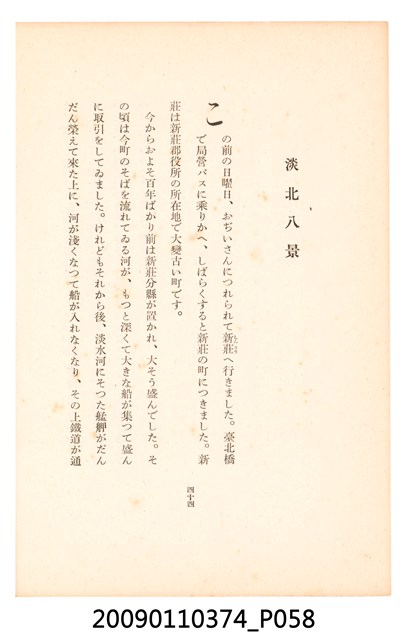 淡北八景
この前の日曜日、おぢいさんにつれられて新莊へ行きました。臺北橋
で局營バスに乘りかへ、しばらくすると新莊の町につきました。新
莊は新莊郡役所の所在地で大變古い町です。
今からおよそ百年ばかり前は新莊分縣が置かれ、大そう盛んでした。そ
の頃は今町のそばを流れてゐる河が、もつと深くて大きな船が集つて盛ん
に取引をしてゐました。けれどもそれから後、淡水河にそつた艋舺がだん
だん榮えて來た上に、河が淺くなつて船が入れなくなり、その上鐵道が通
四十四
20090110374_P058